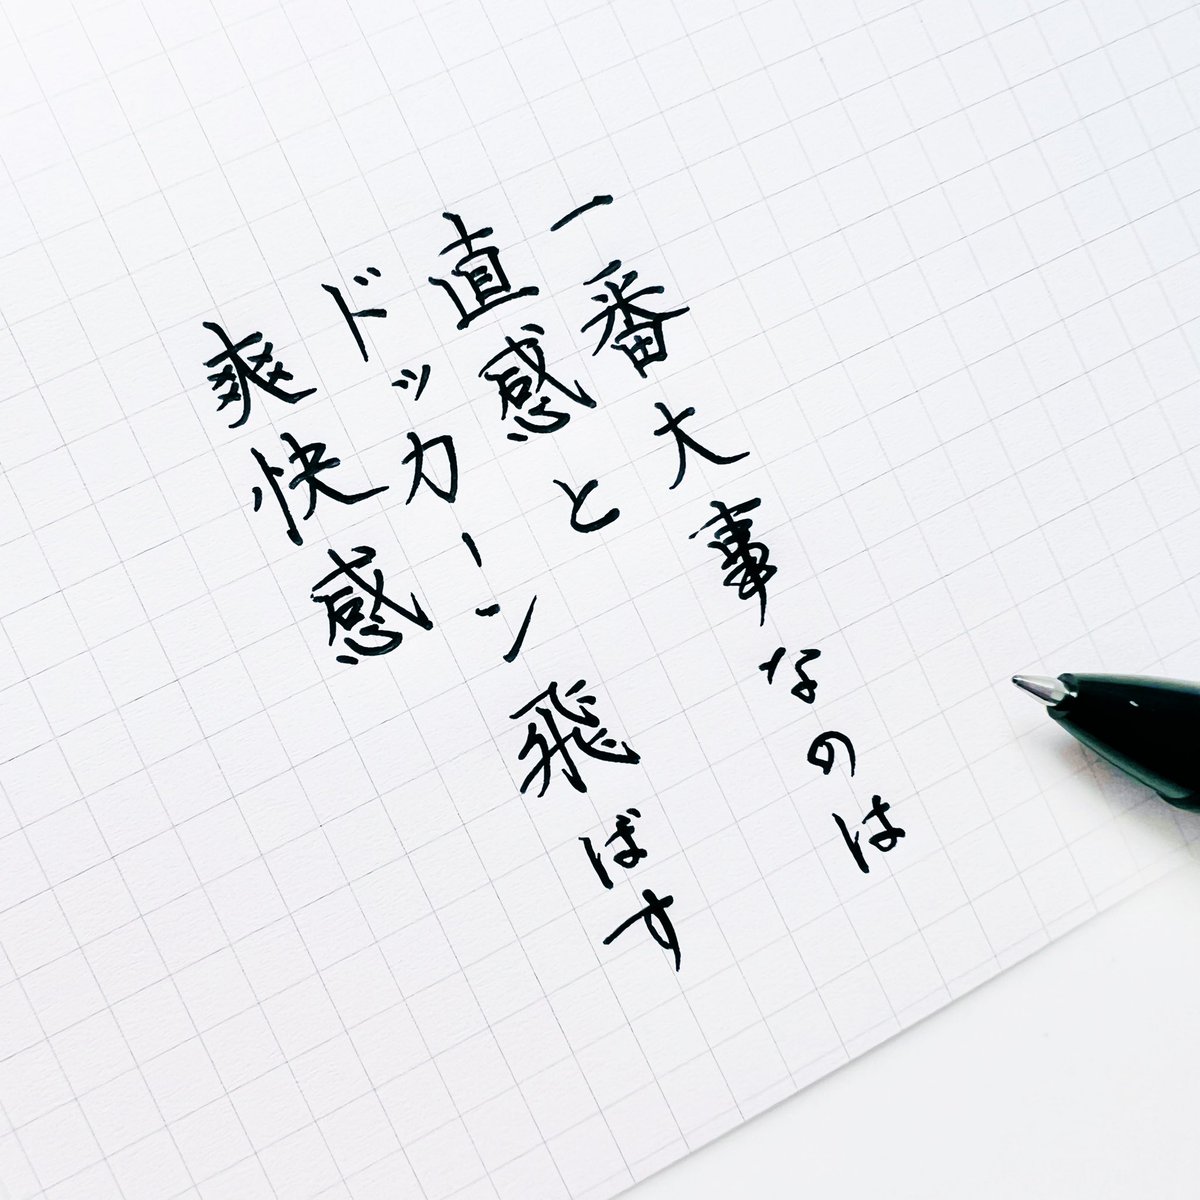 一番大事なのは
直感と
ドッカーン飛ばす
爽快感